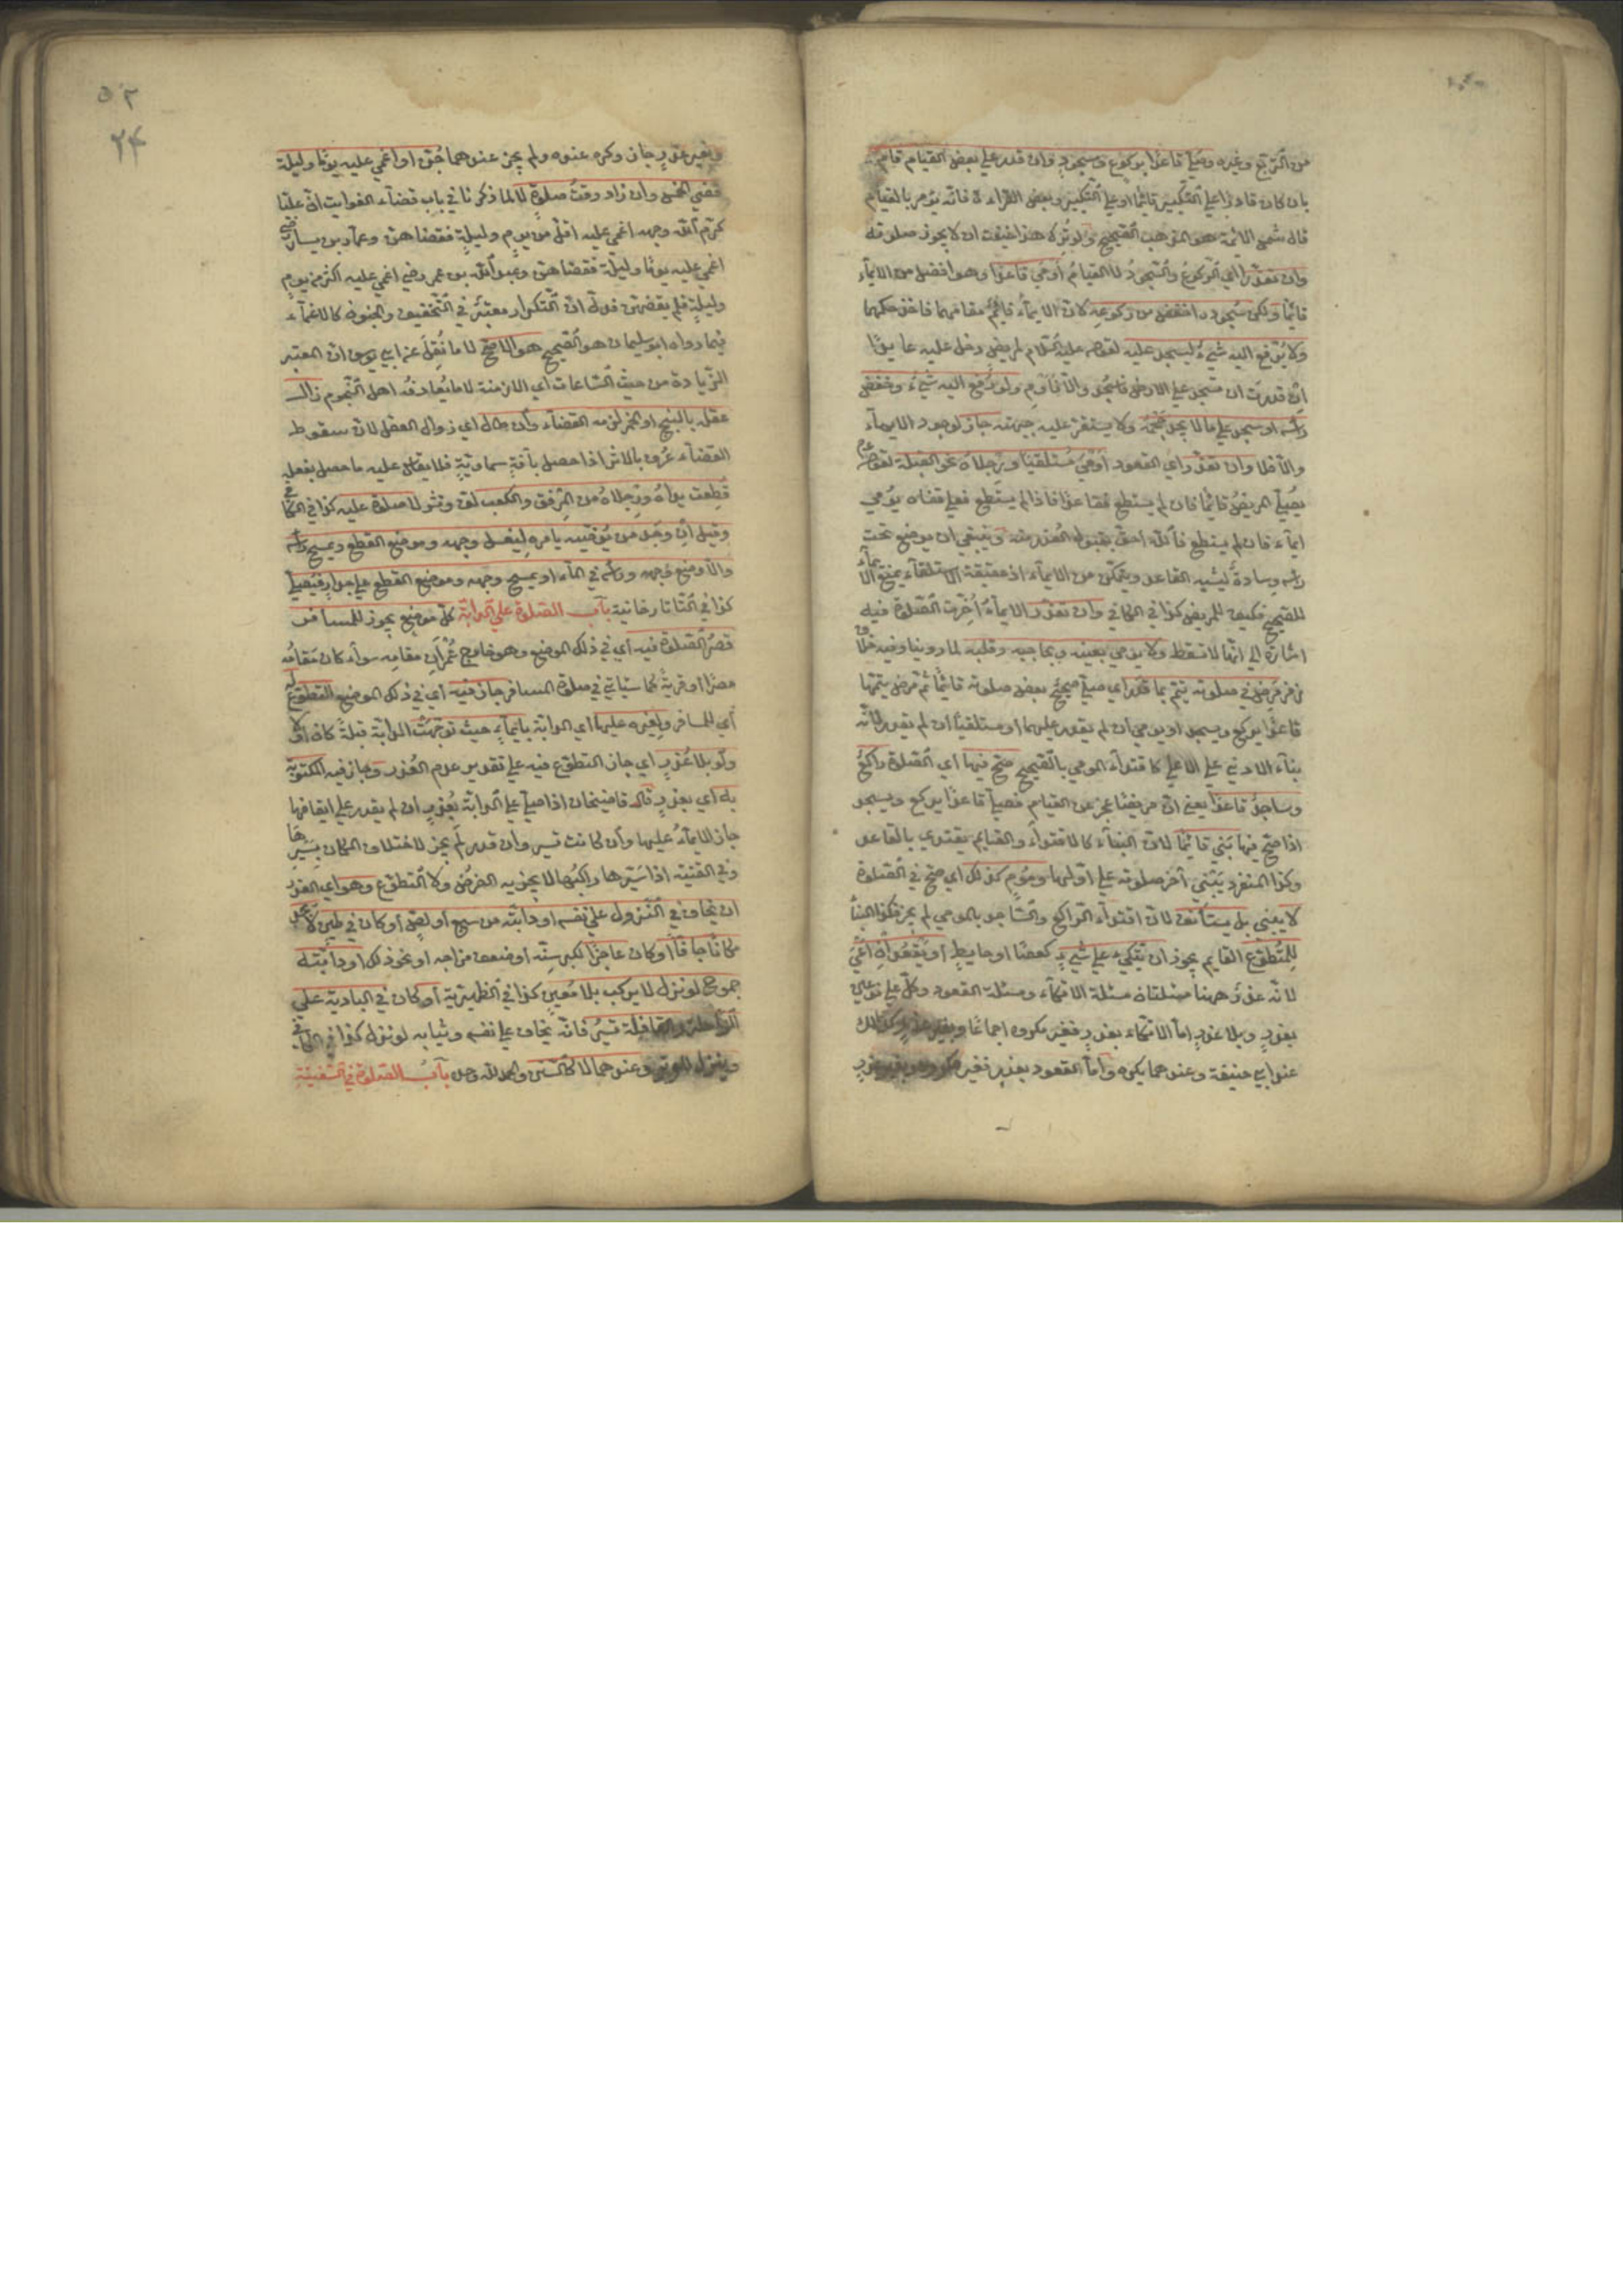 من التربع وغيره وصلي قاعدا بركوع وسجود وان قدر علي بعض القيام قام
بان كان قادرا علي التكبير قائما او علي التكبير وبعض القراءة فانه يؤمر بالقيام
قال شمس الائمة هو المذهب الصحيح ولو ترك هذا خيفت ان لا يجوز صلوته
وان تعذرا اي الركوع والسجود لا القيام أومي قاعدا وهو افضل من الايماء
قائما ولكن سجوده اخفض من ركوعه لان الايماء قائم مقامهما فاخذ حكمهما
ولا يرفع اليه شيء ليسجد عليه لقوله عليه السلام لمريض دخل عليه عايدا
ان قدرت ان تسجد علي الارض فاسجد والا فاوم ولو رفع اليه شيء وخفض
راسه او سجد علي ما لا يجد حجمه ولا يستقر عليه جبهته جاز لوجود الايماء
والا فلا وان تعذر اي القعود أومي مستلقيا ورجلاه نحو القبلة لقوله عم
يصلي المريض قائما فان لم يستطع فقاعدا فاذا لم يستطع فعلي قفاه يومي
ايماء فان لم يستطع فالله احق بقبول العذر منه وينبغي ان يوضع تحت
راسه وسادة ليشبه القاعد ويتمكن من الايماء اذ حقيقة الاستلقاء يمنع الايماء
للصحيح فكيف للمريض كذا في الكافي وان تعذر الايماء أخرت الصلوة فيه
اشارة الي انها لا تسقط ولا يومي بعينه وبحاجبيه وقلبه لما روينا وفيه خلاف
زفر مرض في صلوته يتم بما قدر اي صلي صحيح بعض صلوته قائما ثم مرض يتمها
قاعدا يركع ويسجد او يومي ان لم يقدر عليهما او مستلقيا ان لم يقدر لانه
بناء الادني علي الاعلي كاقتداء المومي بالصحيح صح فيها اي الصلوة راكع
وساجد قاعدا يعني ان مريضا عجز عن القيام فصلي قاعدا يركع ويسجد
اذا صح فيها بني قائما لان البناء كالاقتداء والقايم يقتدي بالقاعد
وكذا المنفرد يبني آخر صلوته علي اولها ومؤم كذلك اي صح في الصلوة
لا يبني بل يستأنف لان اقتداء الراكع والساجد بالمومي لم يجز فكذا البنأ
للمتطوع القايم يجوز ان يتكيء علي شيء كعصا او حايط أو يقعد ان أعيي
لانه عذر وههنا مسئلتان مسئلة الاتكاء ومسئلة القعود وكل علي نوعين
بعذر وبلا عذر اما الاتكاء بعذر فغير مكروه اجماعا وبغير عذر كذلك
عند ابي حنيفة وعندهما يكره واما القعود بعذر فغير مكروه وبغير عذر
٥٢
٢٤
وبغير عذر جاز وكره عنده ولم يجز عندهما جن او اغمي عليه يوما وليلة
قضي الخمس وان زاد وقت صلوة لا لما ذكرنا في باب قضاء الفوايت ان عليا
كرم الله وجهه اغمي عليه اقل من يوم وليلة فقضاهن وعمار بن ياسر رضي
اغمي عليه يوما وليلة فقضاهن وعبد الله بن عمر رضي اغمي عليه اكثر من يوم
وليلة فلم يقضهن فدل ان التكرار معتبر في التخفيف والجنون كالاغماء
فيما رواه ابو سليمان هو الصحيح هو الاصح لا ما نقل عن ابي يوسف ان المعتبر
الزيادة من حيث الساعات اي الازمنة لا ما يتعارفه اهل النجوم زال
عقله بالبنج او الخمر لزمه القضاء وان طال اي زوال العقل لان سقوط
القضاء عرف بالاثر اذا حصل بآفة سماوية فلا يقاس عليه ما حصل بفعله
قطعت يداه ورجلاه من المرفق والكعب لا صلوة عليه كذا في الكافي
وقيل ان وجد من يوضيه يأمره ليغسل وجهه وموضع القطع ويمسح راسه
والا وضع وجهه وراسه في الماء او يمسح وجهه وموضع القطع علي جدار فيصلي
كذا في التاتارخانية باب الصلوة علي الدابة كل موضع يجوز للمسافر
قصر الصلوة فيه اي في ذلك الموضع وهو خارج عمران مقامه سواء كان مقامه
مصرا او قرية كما سيأتي في صلوة المسافر جاز فيه اي في ذلك الموضع التطوع له
أي للمسافر ولغيره عليها اي الدابة بايماء حيث توجهت الدابة قبلة كان أو لا
ولو بلا عذر اي جاز التطوع فيه علي تقدير عدم العذر وجاز فيه المكتوبة
به اي بعذر قال قاضيخان اذا صلي علي الدابة بعذر ان لم يقدر علي ايقافها
جاز الايماء عليها وان كانت تسير وان قدر لم يجز لاختلاف المكان بسيرها
وفي القنية اذا سيرها راكبها لا يجزيه الفرض ولا التطوع وهو اي العذر
ان يخاف في النزول علي نفسه او دابته من سبع او لص أو كان في طين لا يجد
مكانا جافا أو كان عاجزا لكبر سنه أو ضعف مزاجه او نحو ذلك او دابته
جموح لو نزل لا يركب بلا معين كذا في الظهيرية أو كان في البادية علي
الراحلة والقافلة تسير فانه يخاف علي نفسه وثيابه لو نزل كذا في الكافي
وينزل للوتر وعندهما لا كالسنن والحمد لله وحده باب الصلوة في السفينة